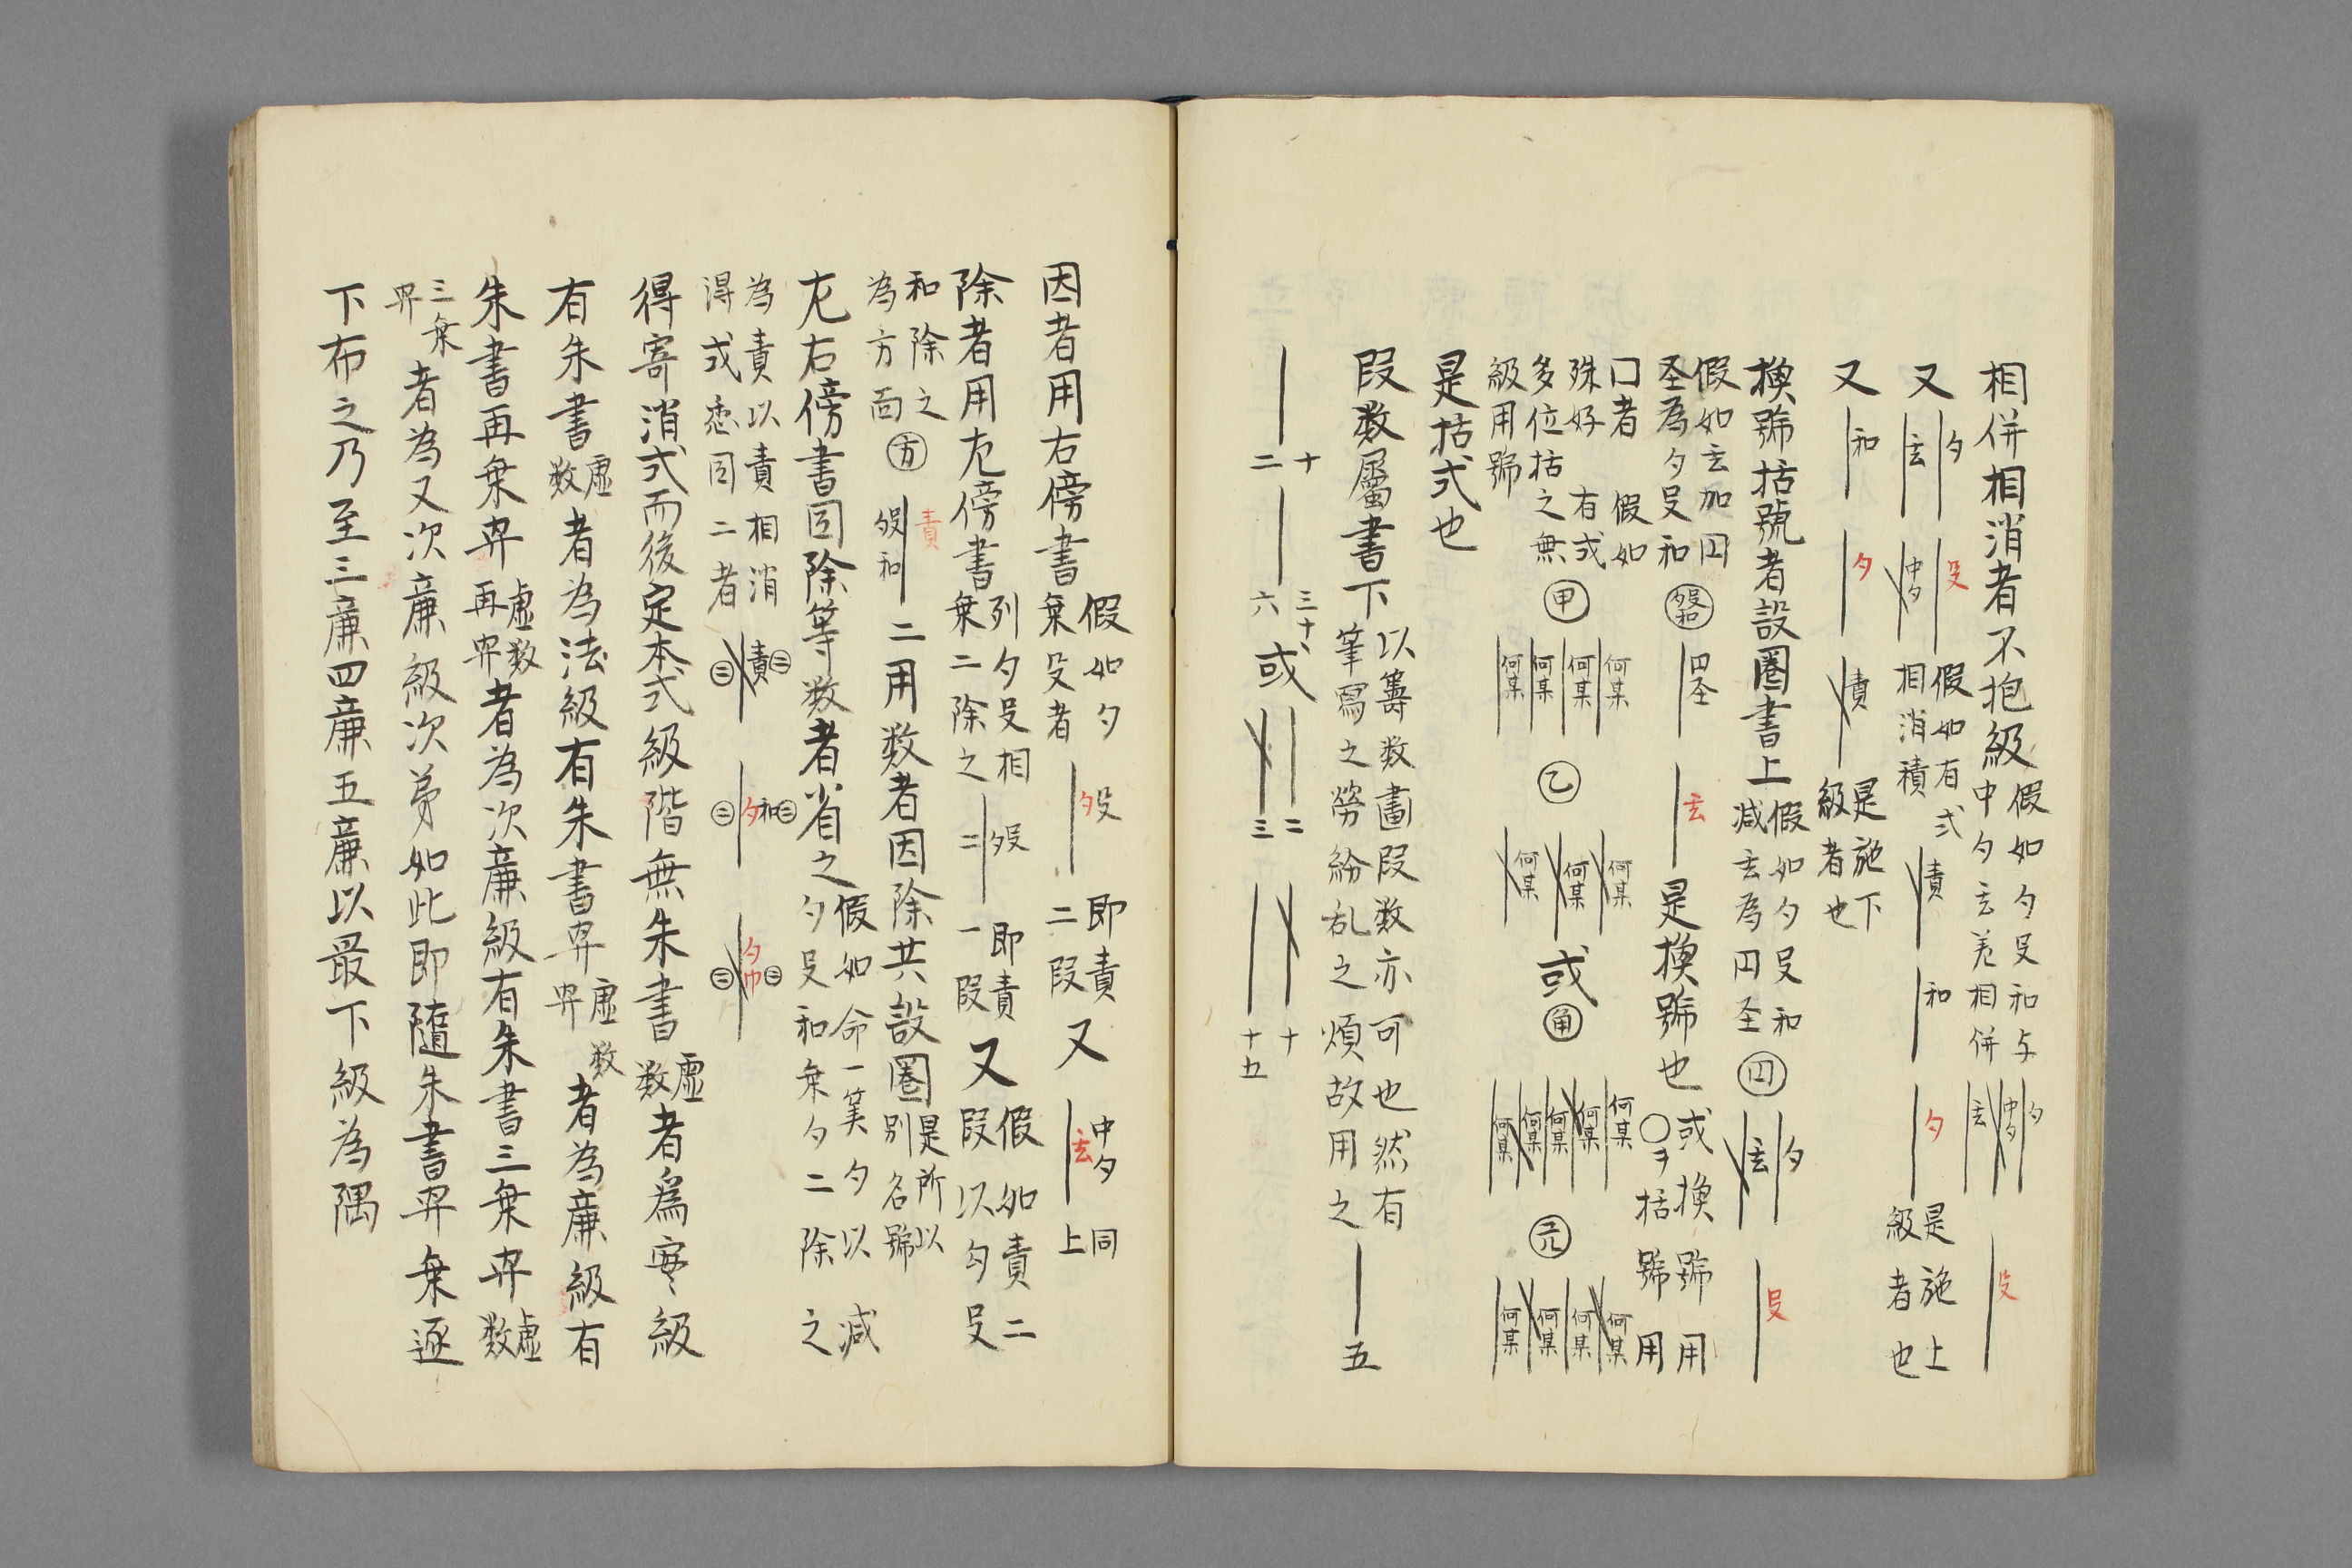 相併相消者不抱級
假如勺殳和与
中勺玄差相併
又
勺
玄
殳
假如有式
相消積
責
和
勺
是施上
級者也
又
和
勺
責
是施下
級者也
換號括號者設圈上書
假如勺殳和
減玄為円圣
勺
玄
殳
假如玄加円
圣為勺殳和
円圣
玄
是換號也
或換號用
〇ヲ括號用
口者 假如
殊好 有或
多位括之無
級用號
甲
何某
何某
何某
何某
乙
何某
何某
何某
或
角
何某
何某
何某
何某
何某
元
何某
何某
何某
何某
是括式也
段数屬書下
以籌数畵段数亦可也然有
筆寫之勞紛乱之煩故用之
五
十
二
三十
六
或
二
三
十
十五
因者用右傍書
假如勺
乗殳者
勺殳
即責
二段
又
中勺
玄
同
上
除者用左傍書
列勺殳相
乗二除之
二
即責
一段
又
假如責二
段以勺殳
和除之
為方面
方
責
二用数者因除共設圈
是所以
別名號
左右傍書因除等数者省之
假如命一筭勺以減
勺殳和乗勺二除之
為責以責相消
得式悉因二者
責
勺和
勺巾
得寄消式而後定本式級階無朱書
虚
数
者為実級
有朱書
虚
数
者為法級有朱書羃
虚数
羃
者為廉級有
朱書再乗羃
虚数
再羃
者為次廉級有朱書三乗羃
虚
数
三乗
羃
者為又次廉級次第如此即隨朱書羃乗逐
下布之乃至三廉四廉五廉以最下級為隅